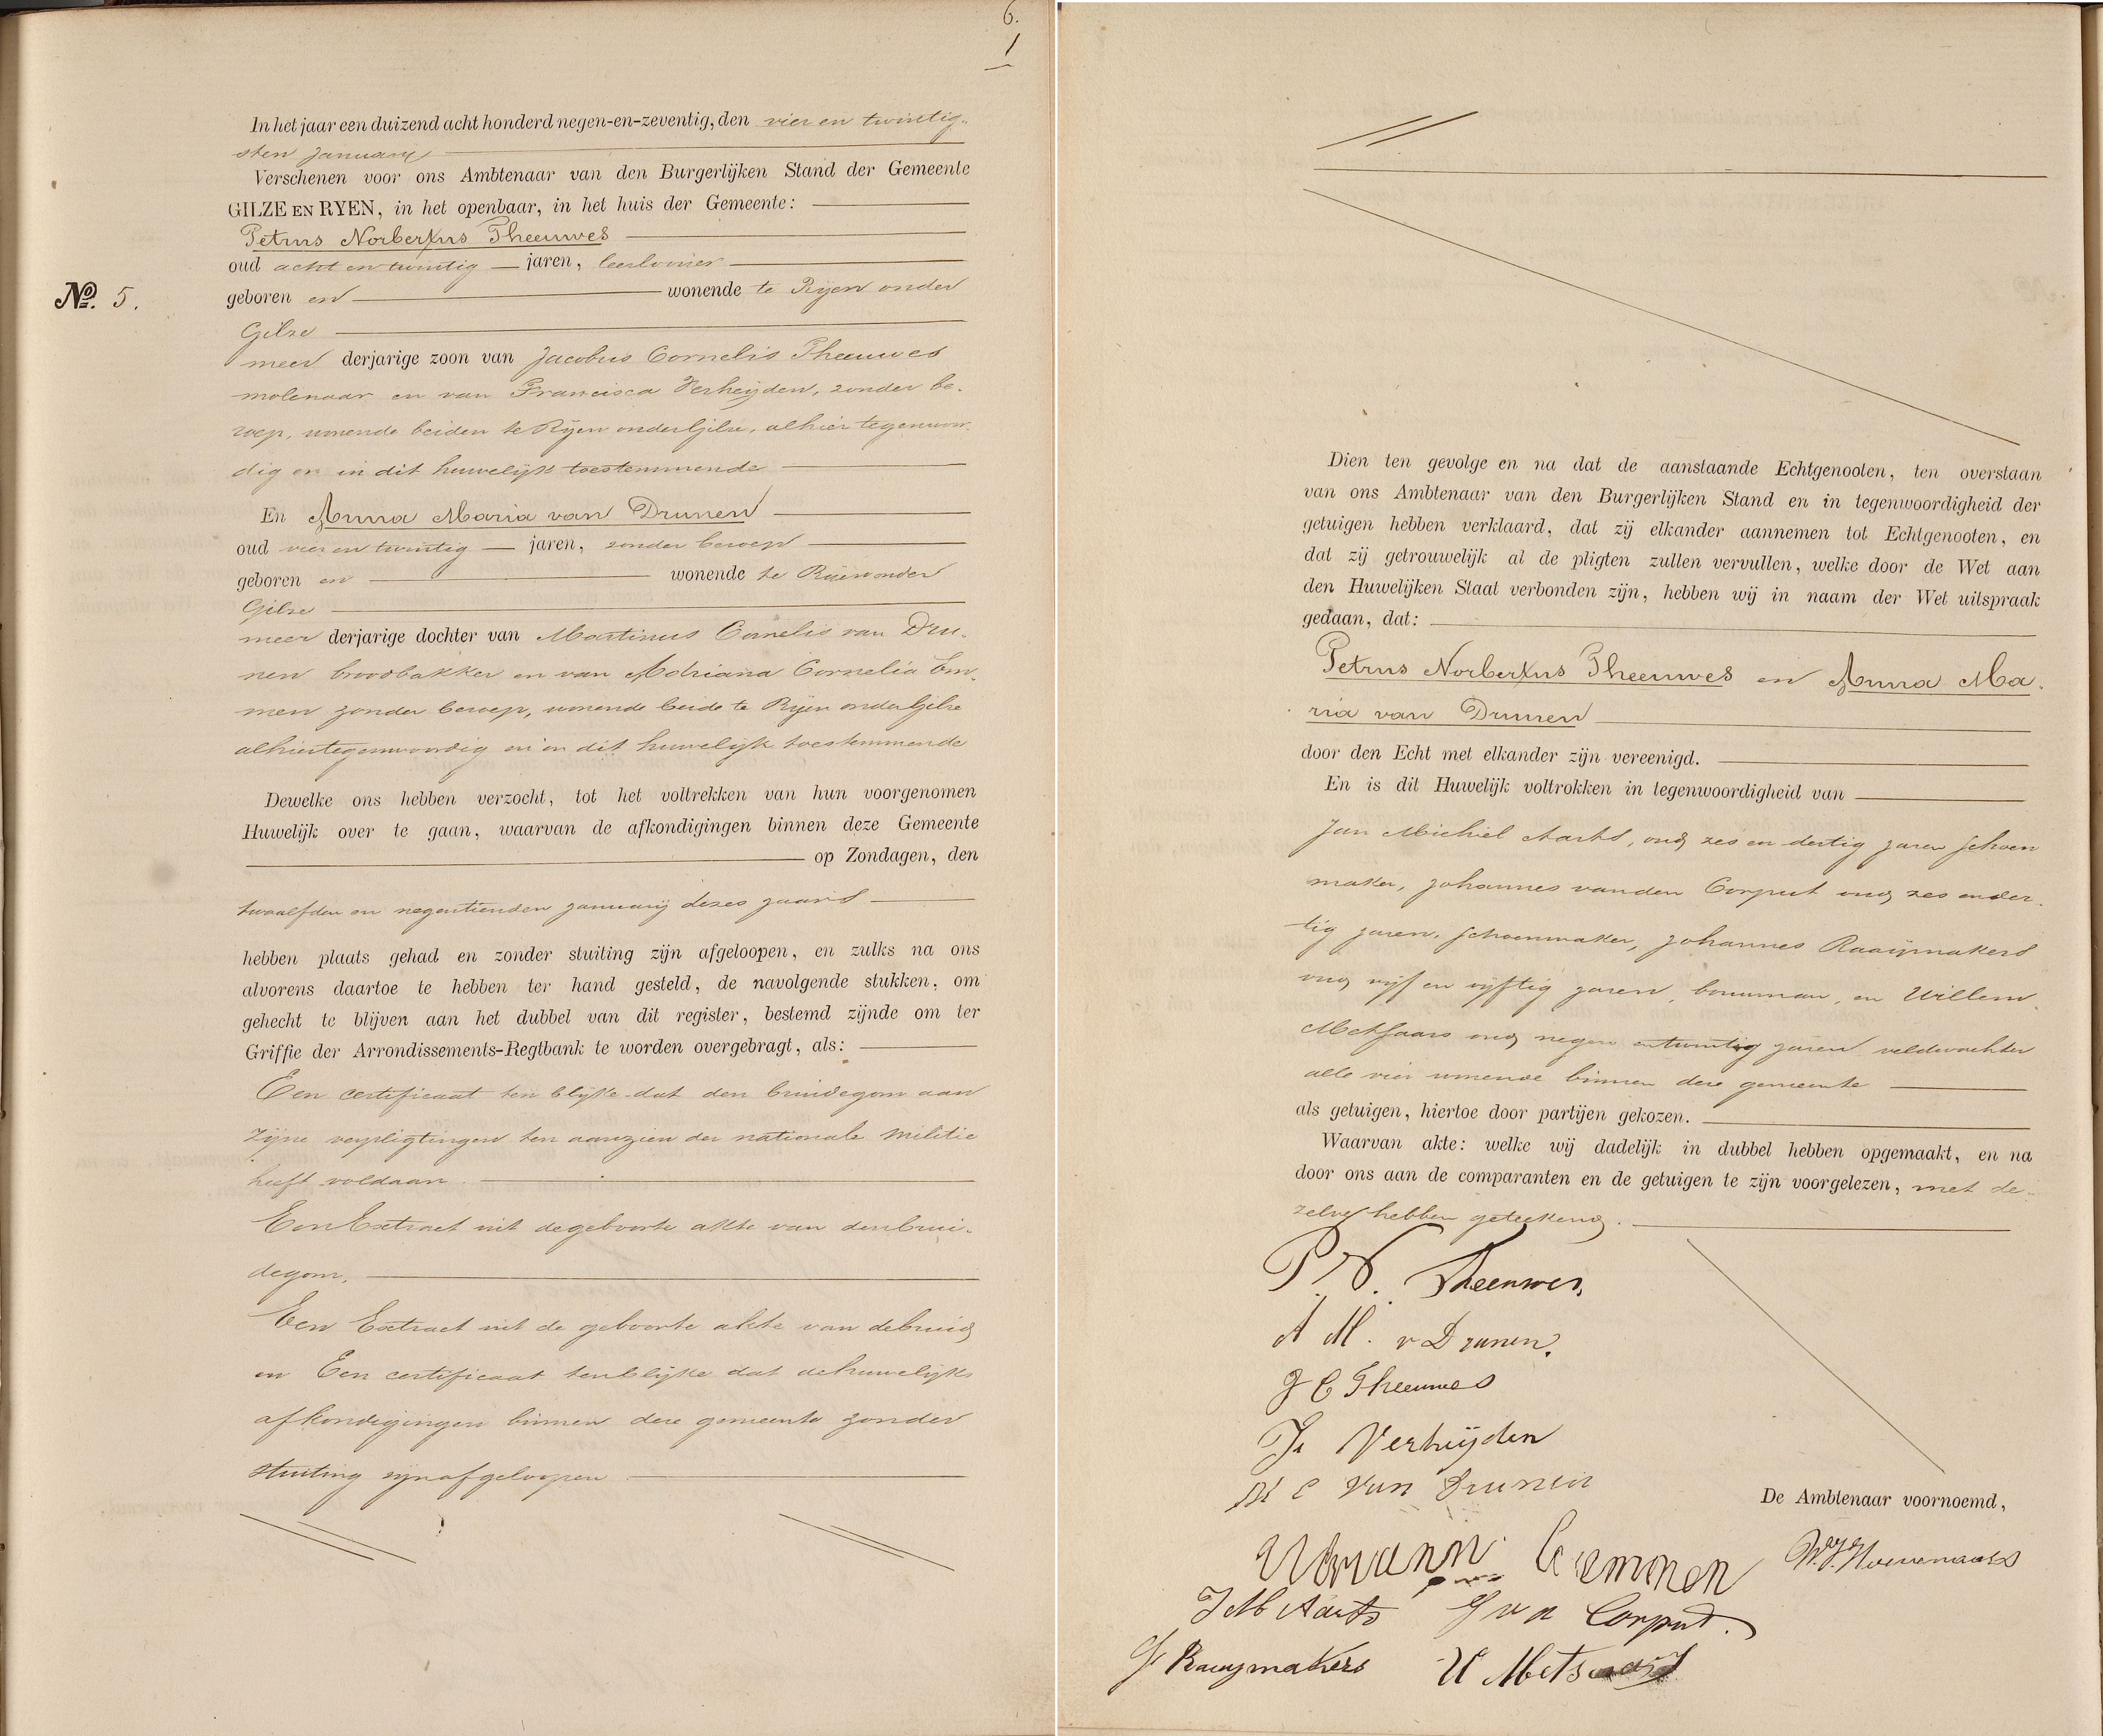 6.
1
In het jaar een duizend acht honderd negen-en-zeventig, den vier en twintig-
sten January
Verschenen voor ons Ambtenaar van den Burgerlijken Stand der Gemeente
GILZE EN RYEN, in het openbaar, in het huis der Gemeente:
Petrus Norbertus Theeuwes
oud acht en twintig jaren, leerlooier
No. 5. geboren en wonende te Rijen onder
Gilze
meer derjarige zoon van Jacobus Cornelis Theeuwes
molenaar en van Francisca Verheijden, zonder be-
roep, wonende beiden te Rijen onder Gilze, alhier tegenwoor-
dig en in dit huwelijk toestemmende
En Anna Maria van Drunen
oud vier en twintig jaren, zonder beroep
geboren en wonende te Rijen onder
Gilze
meer derjarige dochter van Martinus Cornelis van Dru-
nen broodbakker en van Adriana Cornelia Em-
men zonder beroep, wonende beide te Rijen onder Gilze
alhier tegenwoordig en in dit huwelijk toestemmende
Dewelke ons hebben verzocht, tot het voltrekken van hun voorgenomen
Huwelijk over te gaan, waarvan de afkondigingen binnen deze Gemeente
op Zondagen, den
twaalfden en negentienden January dezes jaars
hebben plaats gehad en zonder stuiting zijn afgeloopen, en zulks na ons
alvorens daartoe te hebben ter hand gesteld, de navolgende stukken, om
gehecht te blijven aan het dubbel van dit register, bestemd zijnde om ter
Griffie der Arrondissements-Regtbank te worden overgebragt, als:
Een certificaat ten blijke dat den bruidegom aan
zijne verpligtingen ten aanzien der nationale militie
heeft voldaan.
Een Extract uit de geboorte akte van den brui-
degom.
Een Extract uit de geboorte akte van de bruid
en Een certificaat ten blijke dat de huwelijks
afkondigingen binnen deze gemeente zonder
stuiting zijn afgeloopen
Dien ten gevolge en na dat de aanstaande Echtgenooten, ten overstaan
van ons Ambtenaar van den Burgerlijken Stand en in tegenwoordigheid der
getuigen hebben verklaard, dat zij elkander aannemen tot Echtgenooten, en
dat zij getrouwelijk al de pligten zullen vervullen, welke door de Wet aan
den Huwelijken Staat verbonden zijn, hebben wij in naam der Wet uitspraak
gedaan, dat:
Petrus Norbertus Theeuwes en Anna Ma-
ria van Drunen
door den Echt met elkander zijn vereenigd.
En is dit Huwelijk voltrokken in tegenwoordigheid van
Jan Michiel Aarts, oud zes en dertig jaren schoen
maker, Johannes van den Corput oud zes en der-
tig jaren, schoenmaker, Johannes Raaijmakers
oud vijf en vijftig jaren, bouwman, en Willem
Metsaars oud negen en twintig jaren veldwachter
alle vier wonende binnen deze gemeente
als getuigen, hiertoe door partijen gekozen.
Waarvan akte: welke wij dadelijk in dubbel hebben opgemaakt, en na
door ons aan de comparanten en de getuigen te zijn voorgelezen, met de-
zelve hebben geteekend.
P. N. Theeuwes.
A M. v Drunen.
J C Theeuwes
Fr Verheijden
M C Van Drunen
De Ambtenaar voornoemd,
Emmen
J M Aarts J v d Corput.
J. Raaymakers W Metsaars